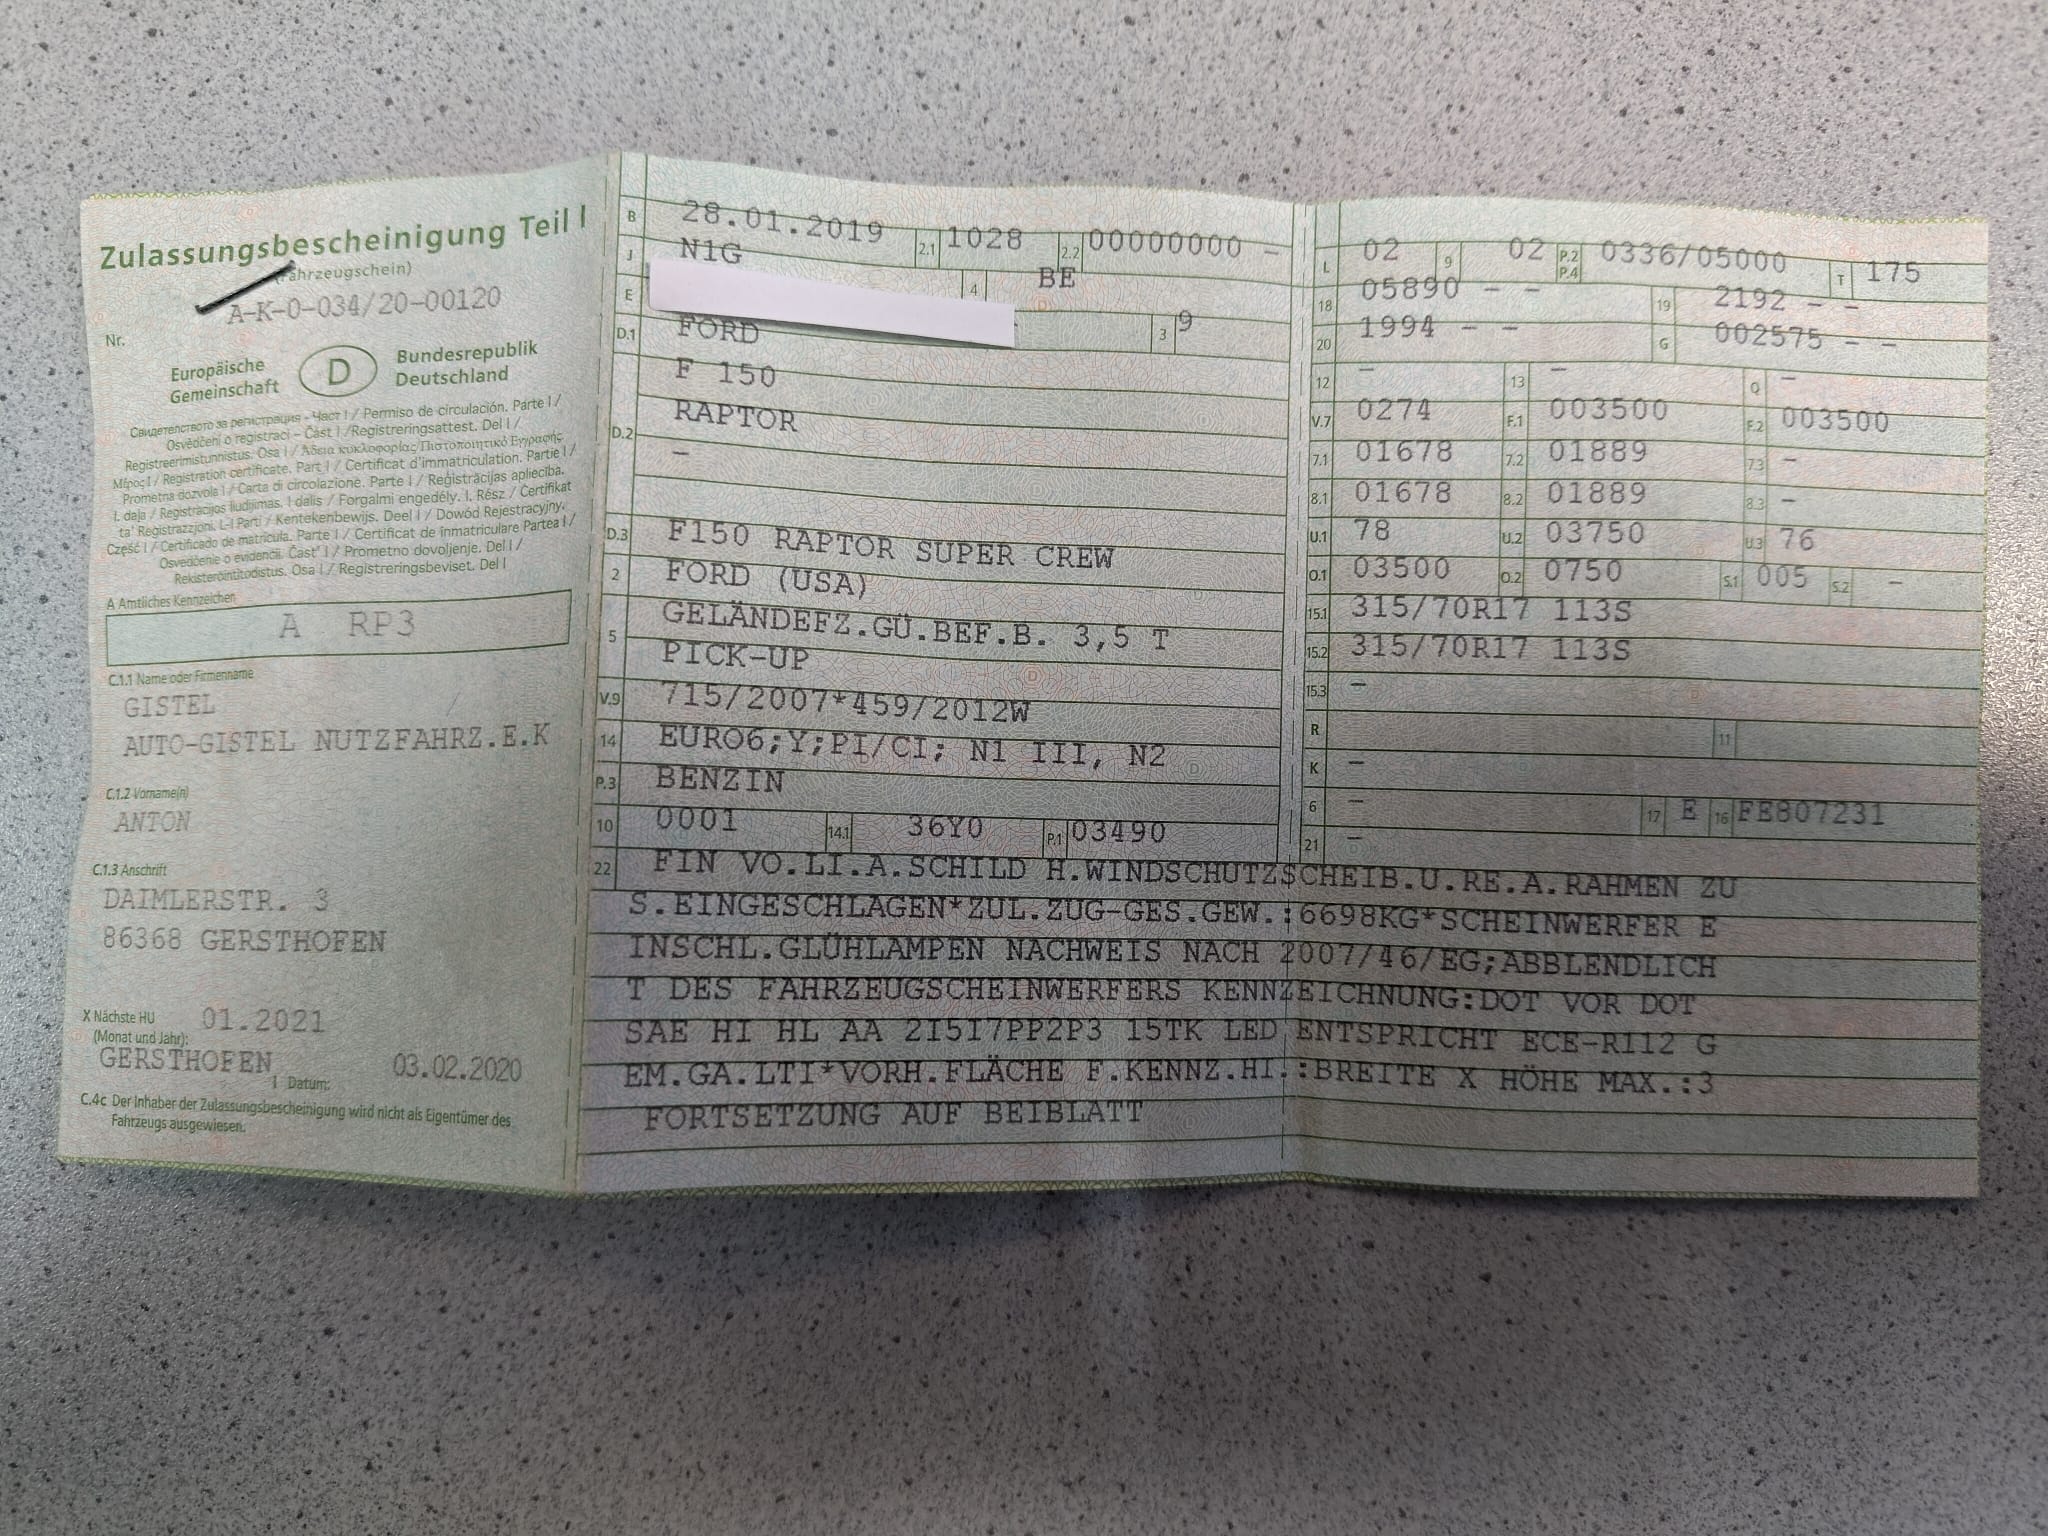 Zulassungsbescheinigung Teil I
(Fahrzeugschein)
A-K-0-034/20-00120
Nr.
Europäische Gemeinschaft
D
Bundesrepublik Deutschland
Свидетелство за регистрация - Част I / Permiso de circulación. Parte I /
Osvědčení o registraci - Část I / Registreringsattest. Del I /
Registreerimistunnistus. Osa I / Άδεια κυκλοφορίας/Πιστοποιητικό Εγγραφής.
Μέρος I / Registration certificate. Part I / Certificat d'immatriculation. Partie I /
Prometna dozvola I / Carta di circolazione. Parte I / Reģistrācijas apliecība.
I. daļa / Registracijos liudijimas. I dalis / Forgalmi engedély. I. Rész / Ċertifikat
ta' Reġistrazzjoni. L-I Parti / Kentekenbewijs. Deel I / Dowód Rejestracyjny.
Część I / Certificado de matrícula. Parte I / Certificat de înmatriculare Partea I /
Osvedčenie o evidencii. Časť I / Prometno dovoljenje. Del I /
Rekisteröintitodistus. Osa I / Registreringsbeviset. Del I
A Amtliches Kennzeichen
A RP3
C.1.1 Name oder Firmenname
GISTEL
AUTO-GISTEL NUTZFAHRZ.E.K
C.1.2 Vorname(n)
ANTON
C.1.3 Anschrift
DAIMLERSTR. 3
86368 GERSTHOFEN
X Nächste HU 01.2021
(Monat und Jahr):
GERSTHOFEN 03.02.2020
I Datum:
C.4c Der Inhaber der Zulassungsbescheinigung wird nicht als Eigentümer des
Fahrzeugs ausgewiesen.
B 28.01.2019 2.1 1028 2.2 00000000 -
J N1G 4 BE
E 3 9
D.1 FORD
F 150
D.2 RAPTOR
-
D.3 F150 RAPTOR SUPER CREW
2 FORD (USA)
5 GELÄNDEFZ.GÜ.BEF.B. 3,5 T
PICK-UP
V.9 715/2007*459/2012W
14 EURO6;Y;PI/CI; N1 III, N2
P.3 BENZIN
10 0001 14.1 36Y0 P.1 03490
L 02 9 02 P.2 P.4 0336/05000 T 175
18 05890 - - 19 2192 - -
20 1994 - - G 002575 - -
12 - 13 - Q -
V.7 0274 F.1 003500 F.2 003500
7.1 01678 7.2 01889 7.3 -
8.1 01678 8.2 01889 8.3 -
U.1 78 U.2 03750 U.3 76
O.1 03500 O.2 0750 S.1 005 S.2 -
15.1 315/70R17 113S
15.2 315/70R17 113S
15.3 -
R 11
K -
6 - 17 E 16 FE807231
21 -
22 FIN VO.LI.A.SCHILD H.WINDSCHUTZSCHEIB.U.RE.A.RAHMEN ZU
S.EINGESCHLAGEN*ZUL.ZUG-GES.GEW.:6698KG*SCHEINWERFER E
INSCHL.GLÜHLAMPEN NACHWEIS NACH 2007/46/EG;ABBLENDLICH
T DES FAHRZEUGSCHEINWERFERS KENNZEICHNUNG:DOT VOR DOT
SAE HI HL AA 2I5I7PP2P3 15TK LED ENTSPRICHT ECE-R112 G
EM.GA.LTI*VORH.FLÄCHE F.KENNZ.HI.:BREITE X HÖHE MAX.:3
FORTSETZUNG AUF BEIBLATT